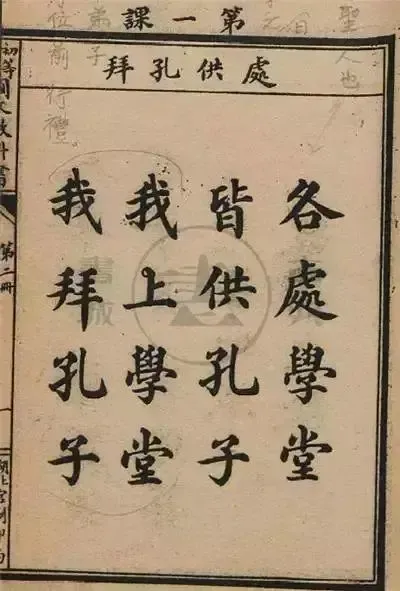 第一課
處供孔拜
各處學堂
皆供孔子
我上學堂
我拜孔子
初等國文教科書
第二冊
一
聖人也
弟子
位前行禮